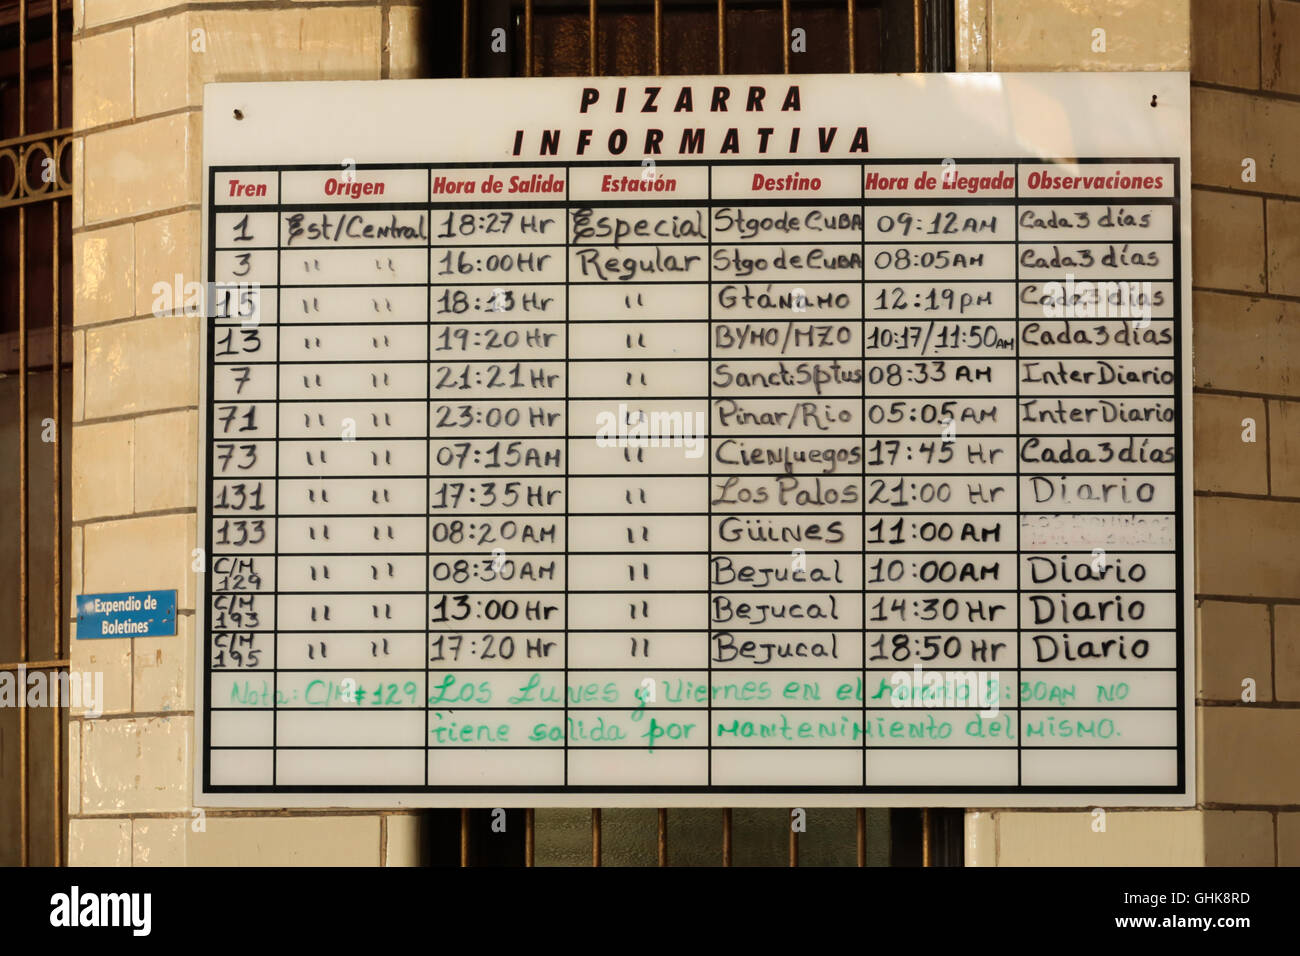 PIZARRA
INFORMATIVA
Tren Origen Hora de Salida Estación Destino Hora de Llegada Observaciones
1 Est/Central 18:27 Hr Especial Stgo de CUBA 09:12 AM Cada 3 días
3 " " 16:00 Hr Regular Stgo de CUBA 08:05 AM Cada 3 días
15 " " 18:13 Hr " Gtánamo 12:19 pm Cada 3 días
13 " " 19:20 Hr " BYMO/MZO 10:17/11:50 AM Cada 3 días
7 " " 21:21 Hr " Sanct:Sptus 08:33 AM InterDiario
71 " " 23:00 Hr " Pinar/Rio 05:05 AM InterDiario
73 " " 07:15 AM " Cienfuegos 17:45 Hr Cada 3 días
131 " " 17:35 Hr " Los Palos 21:00 Hr Diario
133 " " 08:20 AM " Güines 11:00 AM
C/M 129 " " 08:30 AM " Bejucal 10:00 AM Diario
C/M 193 " " 13:00 Hr " Bejucal 14:30 Hr Diario
C/M 195 " " 17:20 Hr " Bejucal 18:50 Hr Diario
Nota: C/M #129 Los Lunes y Viernes en el horario 8:30 AM no
tiene salida por mantenimiento del mismo.
Expendio de
Boletines
alamy
Image ID: GHK8RD
www.alamy.com